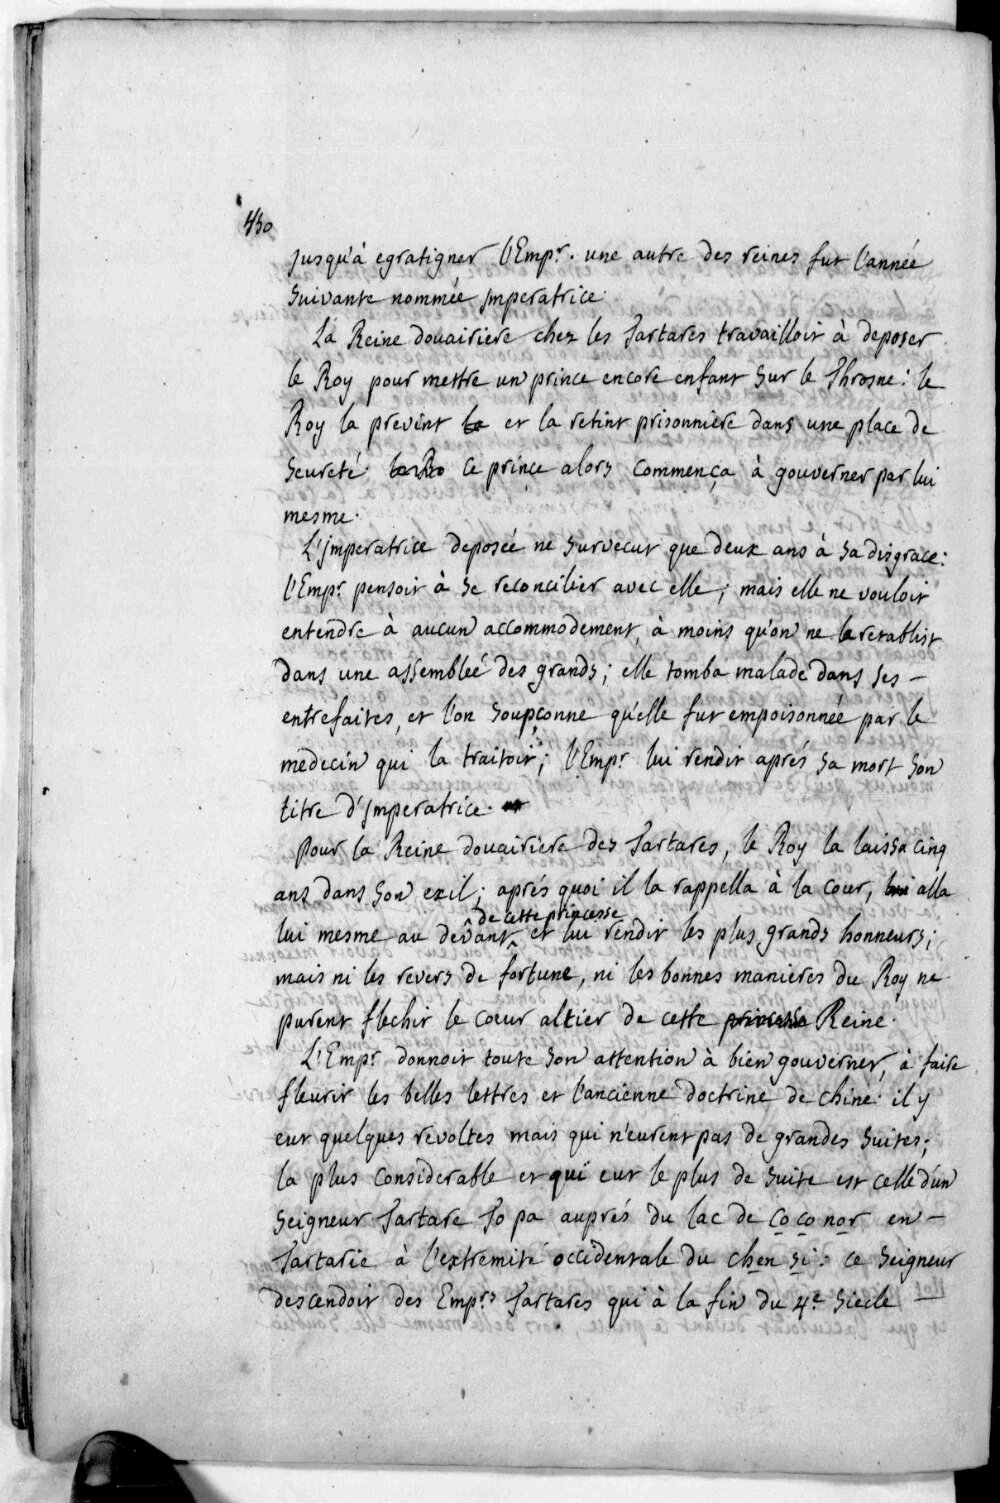 450
jusqu'à egratigner l'Empr. une autre des reines fut l'année
suivante nommée jmperatrice.
La Reine douairiere chez les Tartares travailloit à deposer
le Roy pour mettre un prince encore enfant sur le Throsne: le
Roy la prevint la et la retint prisonniere dans une place de
seureté. ce prince alors commença à gouverner par lui
mesme.
L'jmperatrice deposée ne survecut que deux ans à sa disgrace:
l'Empr. pensoit à se reconcilier avec elle, mais elle ne vouloit
entendre à aucun accommodement, à moins qu'on ne la retablist
dans une assemblée des grands; elle tomba malade dans ses -
entrefaites, et l'on soupçonne qu'elle fut empoisonnée par le
medecin qui la traitoit; l'Empr. lui rendit aprés sa mort son
titre d'jmperatrice.
pour la Reine douairiere des Tartares, le Roy la laissa cinq
ans dans son exil; aprés quoi il la rappella à la cour, lui alla
de cette princesse
lui mesme au devant et lui rendit les plus grands honneurs;
mais ni les revers de fortune, ni les bonnes manieres du Roy ne
purent flechir le cœur altier de cette princesse Reine.
L'Empr. donnoit toute son attention à bien gouverner, à faire
fleurir les belles lettres et l'ancienne doctrine de chine. il y
eut quelques revoltes mais qui n'eurent pas de grandes suites;
la plus considerable et qui eut le plus de suite est celle d'un
seigneur Tartare To pa auprés du lac de co co nor en -
Tartarie à l'extremité occidentale du chen si: ce seigneur
descendoit des Emprs. Tartares qui à la fin du 4e. siecle